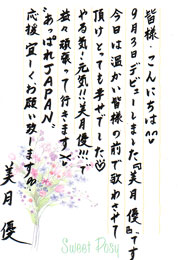 皆様・こんにちは^^
9月3日デビューしました『美月優』です
今日は温かい皆様の前で歌わさせて
頂けてとっても幸せでした♡
やる気!元気!!美月優!!!で
益々頑張って行きます
"あっぱれJAPAN"
応援宜しくお願い致します
美月優
Sweet Rosy